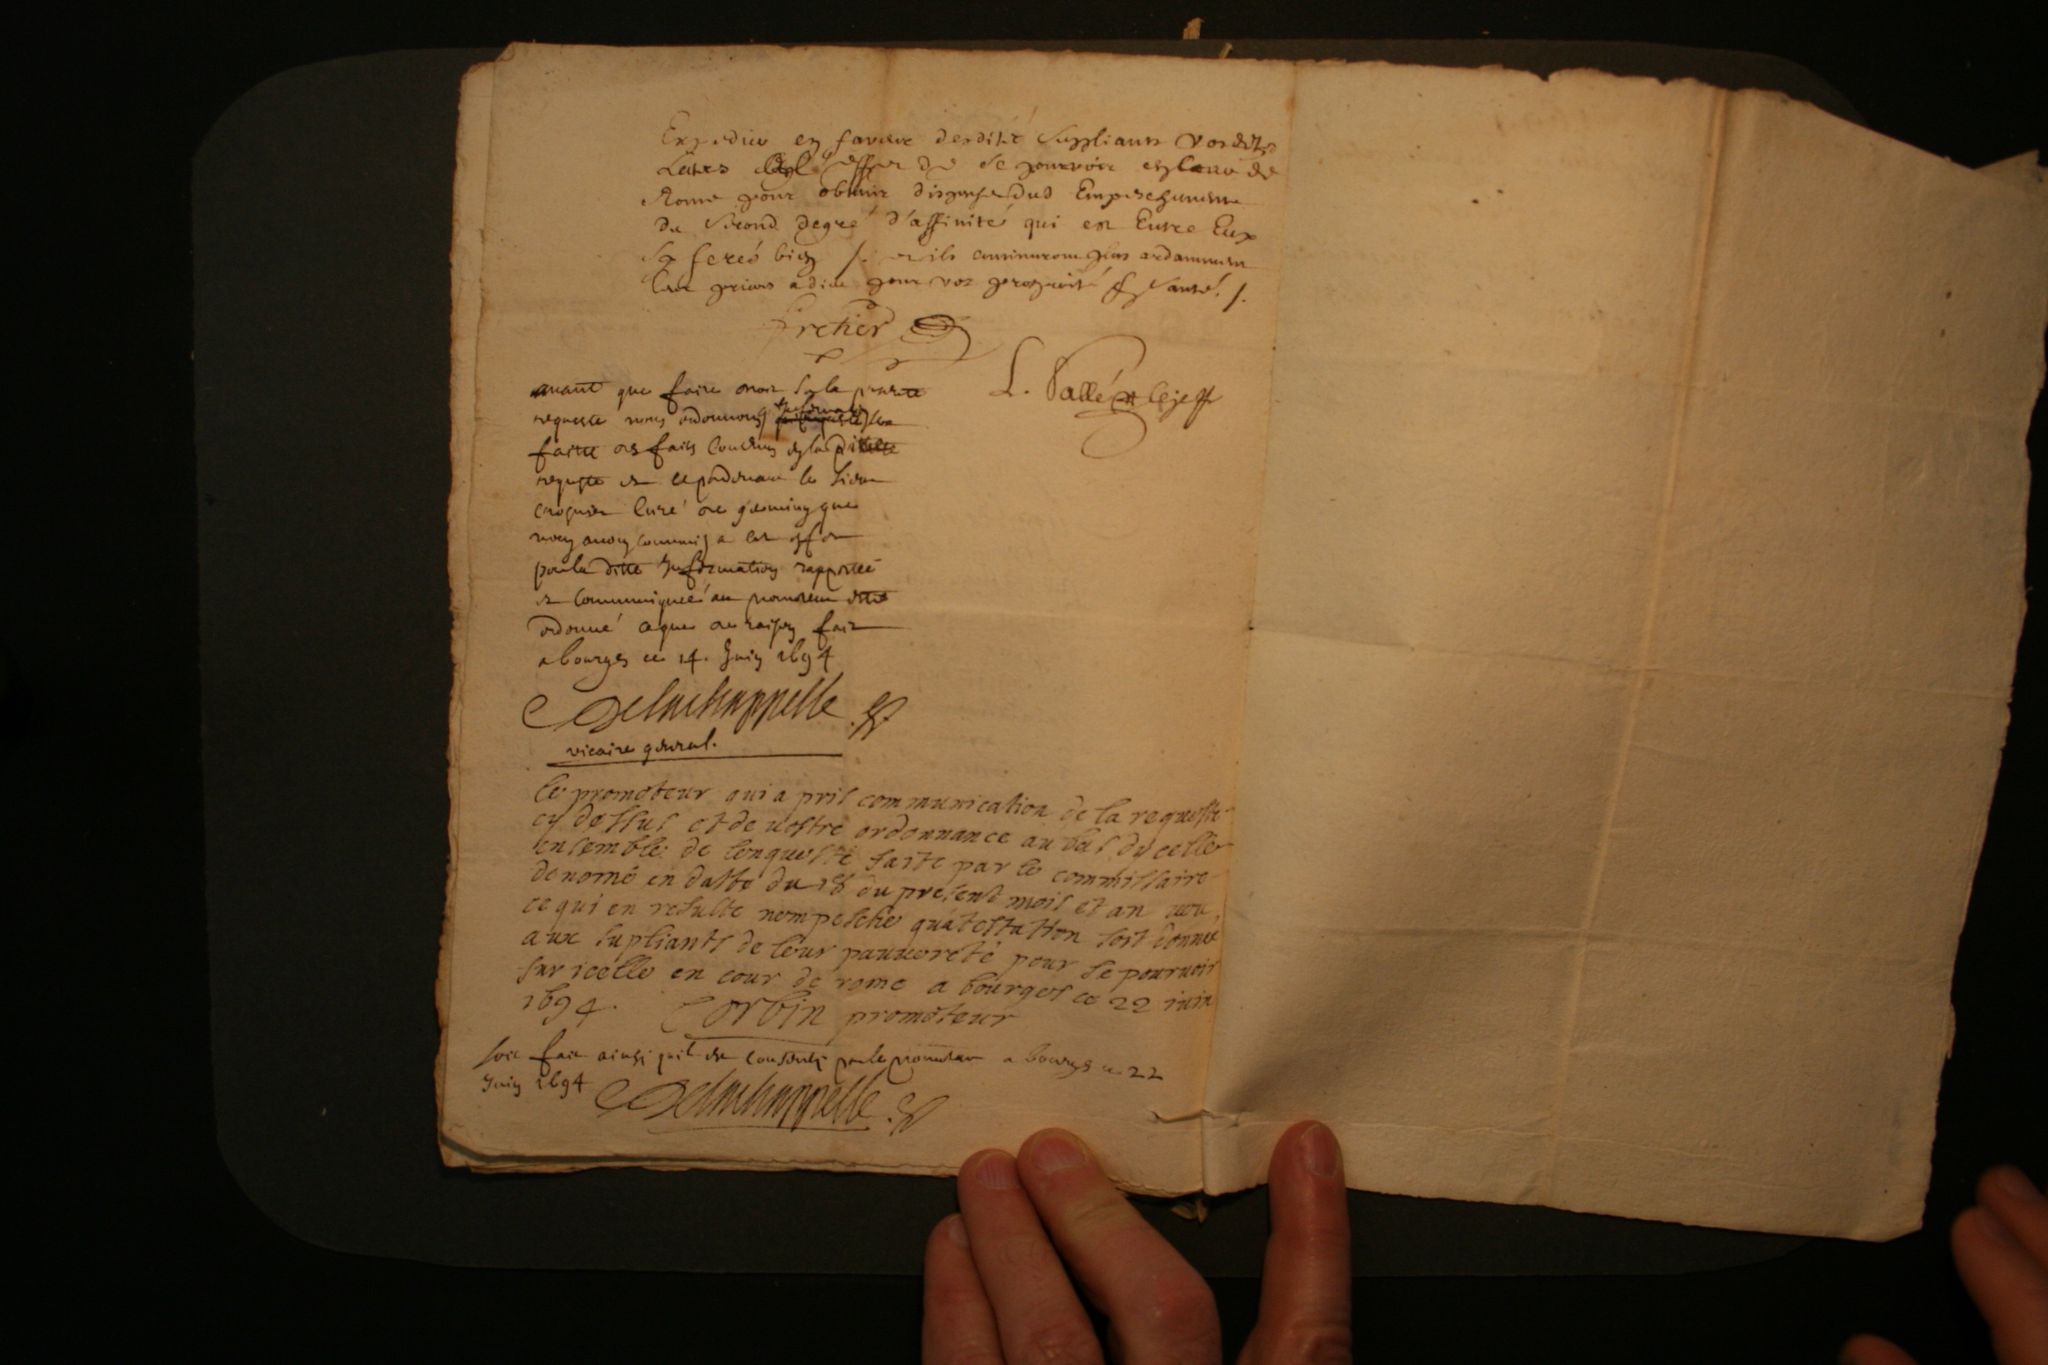 Expedier en faveur desdits suppliants vosdites
Lettres a l'effet de se pourvoir en Cour de
Rome pour obtenir dispense dud Empeschement
du second degré d'affinité qui est Entre Eux
Sy ferés bien /. et ils continueront plus ardamment
leur prieres a dieu pour vos prosperité et santé. /.
avant que faire droit sur la presente
requeste nous ordonnons information estre
faitte des faits contenus en la ditte
requeste et ce pardevant le sieur
curé de que
nous avons commis a cet effet
pour la ditte Information rapportée
et communiquée au promoteur estre
ordonné ce que de raison fait
a bourges ce 14. Juin 1694
Delachappelle
vicaire general.
le promoteur qui a pris communication de la requeste
cy dessus et de vostre ordonnance au bas dycelle
ensemble de lenqueste faite par le commissaire
denomé en datte du 18 du present mois et an veu
ce qui en resulte nempesche quatestation soit donnee
aux supliants de leur pauvreté pour se pourvoir
sur icelle en cour de rome a bourges ce 22 juin
1694. Corbin promoteur
soit fait ainsi quil est consenti par le promoteur a bourges ce 22
Juin 1694 Delachappelle